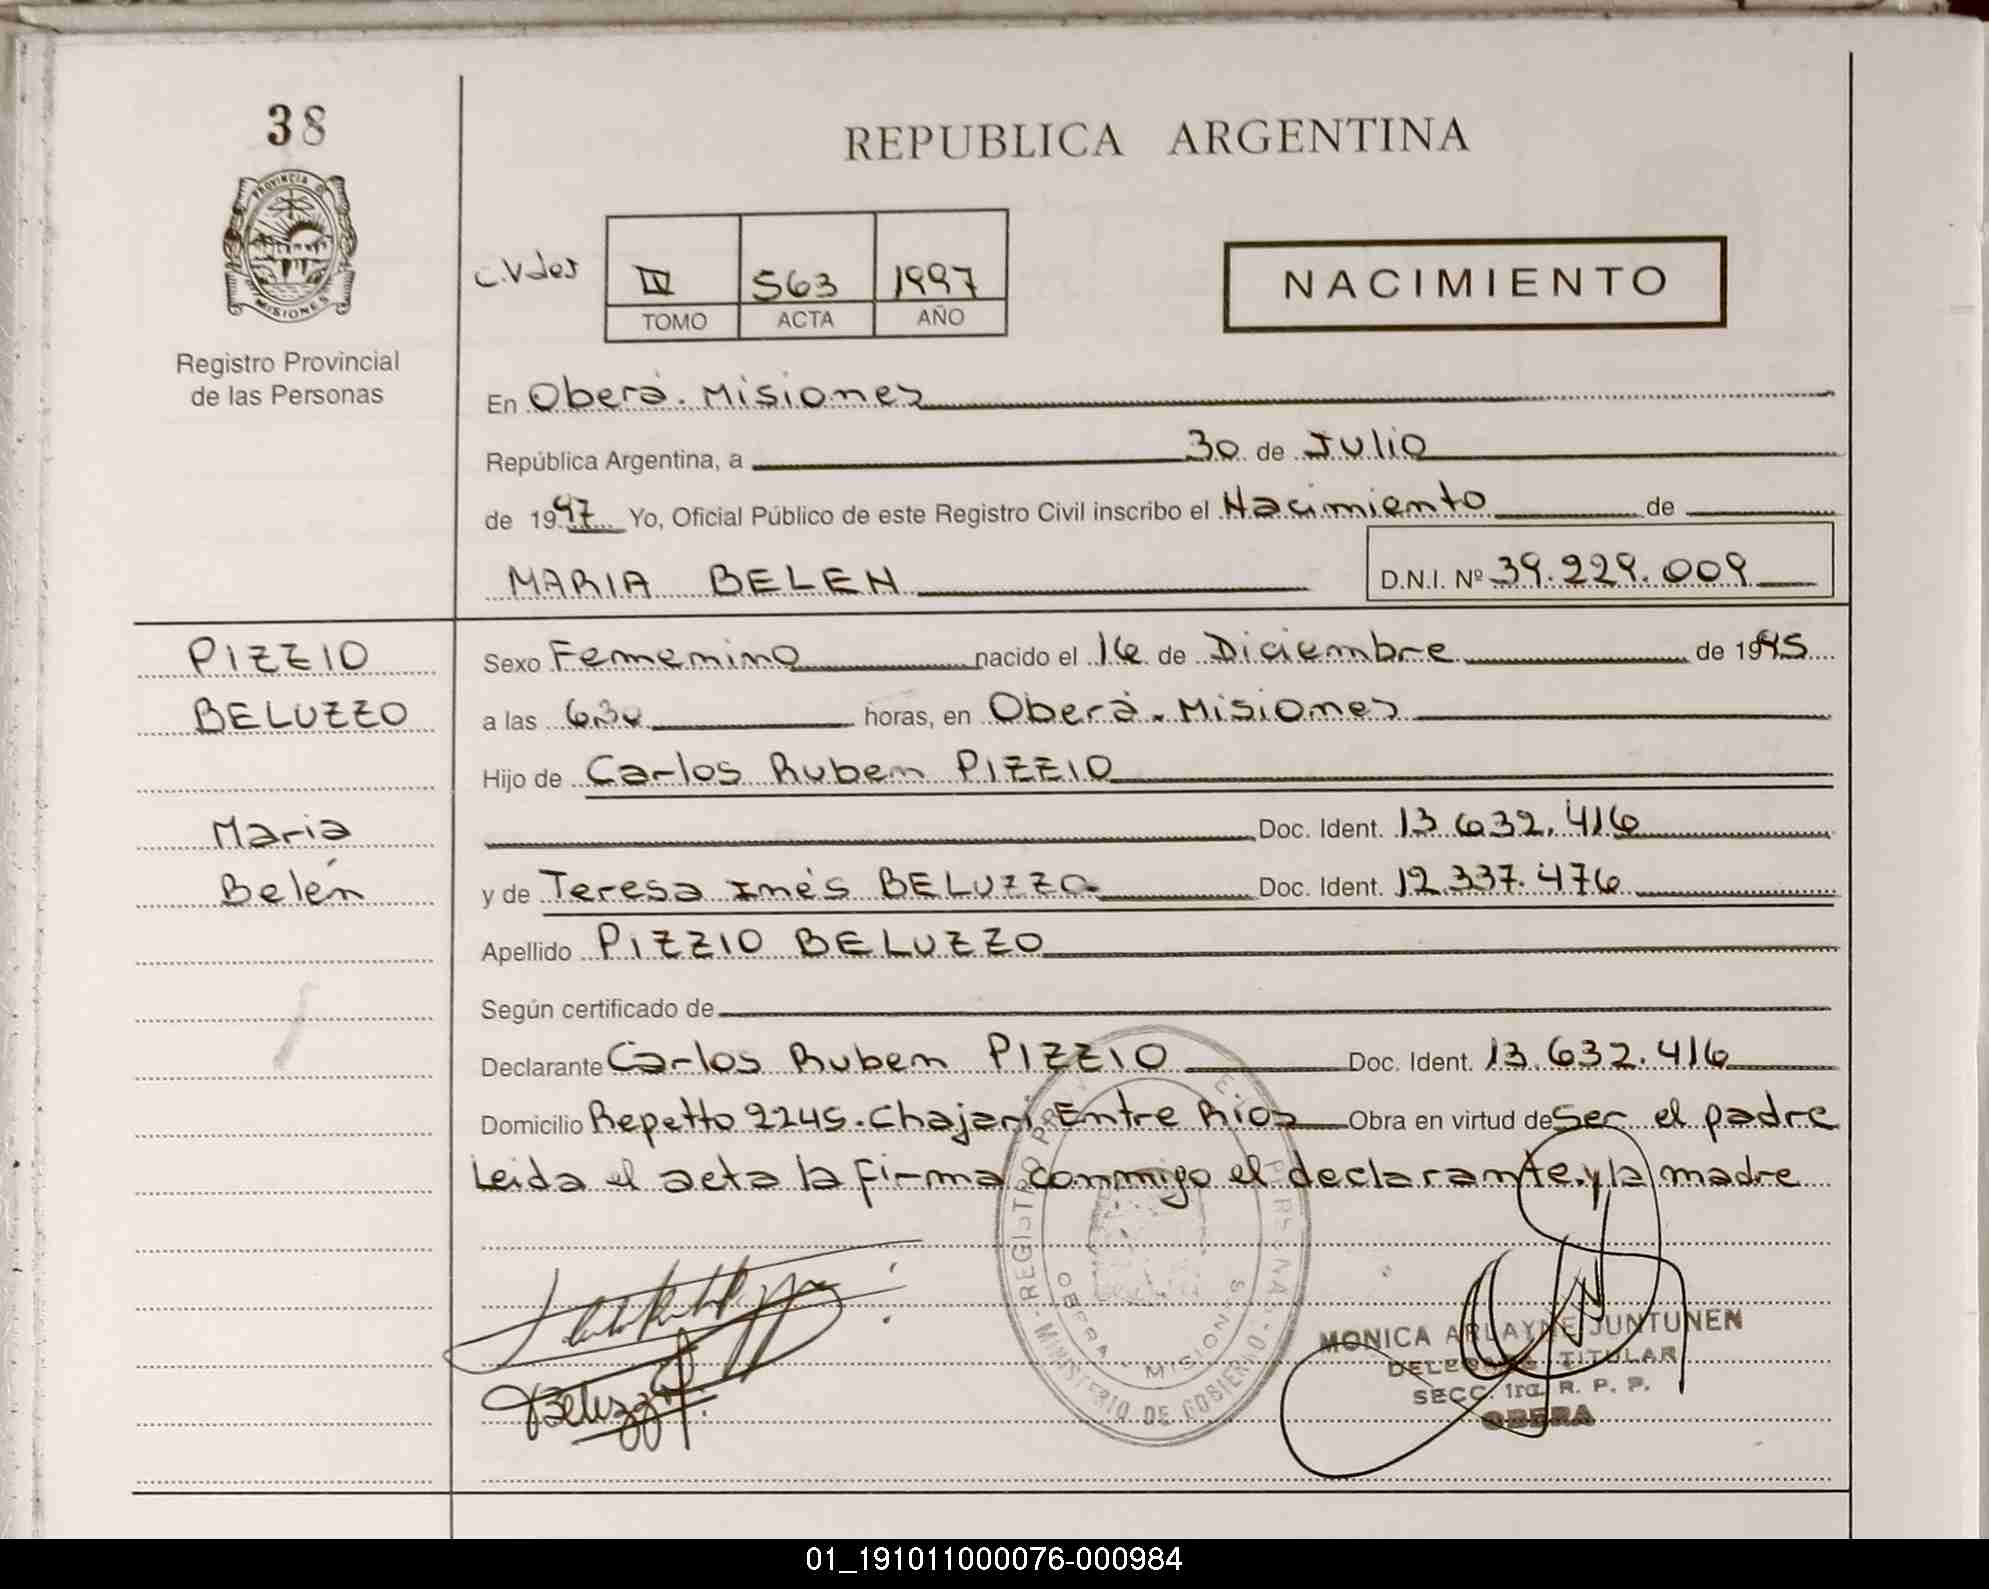 38
REPUBLICA ARGENTINA
PROVINCIA D
MISIONES
IV 563 1997
TOMO ACTA AÑO
NACIMIENTO
Registro Provincial
de las Personas
En Oberá. Misiones
República Argentina, a 30 de Julio
de 1997 Yo, Oficial Público de este Registro Civil inscribo el Nacimiento de
MARIA BELEN D.N.I. Nº 39.229.009
PIZZIO
BELUZZO
Maria
Belén
Sexo Femenino nacido el 16 de Diciembre de 1995
a las 6.30 horas, en Oberá. Misiones
Hijo de Carlos Ruben PIZZIO
Doc. Ident. 13.632.416
y de Teresa Inés BELUZZO Doc. Ident. 12.337.476
Apellido PIZZIO BELUZZO
Según certificado de
Declarante Carlos Ruben PIZZIO Doc. Ident. 13.632.416
Domicilio Repetto 2245. Chajari. Entre Rios Obra en virtud de Ser el padre
Leida el acta la firma conmigo el declarante.y la madre
Beluzzo
MINISTERIO DE GOBIERNO
OBERA - MISIONES
MONICA ARLAYNE JUNTUNEN
DELEGADA TITULAR
SECC. 1ra. R. P. P.
OBERA
01_191011000076-000984